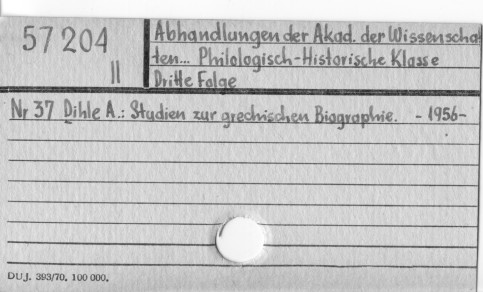 57 204
II
Abhandlungen der Akad. der Wissenschaf
ten... Philologisch-Historische Klasse
Dritte Folge
Nr 37 Dihle A.: Studien zur grechischen Biographie. - 1956-
DUJ. 393/70. 100 000.